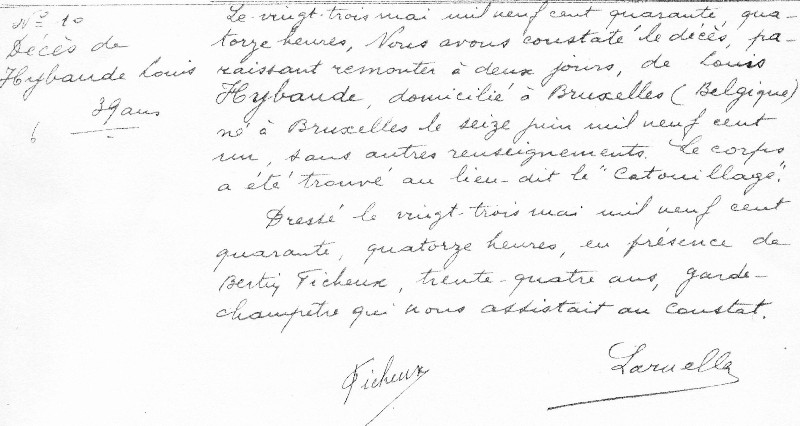 No 10
Décès de
Hybaude Louis
39 ans
Le vingt-trois mai mil neuf cent quarante, qua-
torze heures, Nous avons constaté le décès, pa-
raissant remonter à deux jours, de Louis
Hybaude, domicilié à Bruxelles (Belgique)
né à Bruxelles le seize juin mil neuf cent
un, sans autres renseignements. Le corps
a été trouvé au lieu-dit le "Catouillage".
Dressé le vingt-trois mai mil neuf cent
quarante, quatorze heures, en présence de
Bertin Ficheux, trente-quatre ans, garde-
champêtre qui nous assistait au constat.
Ficheux
Laruelle